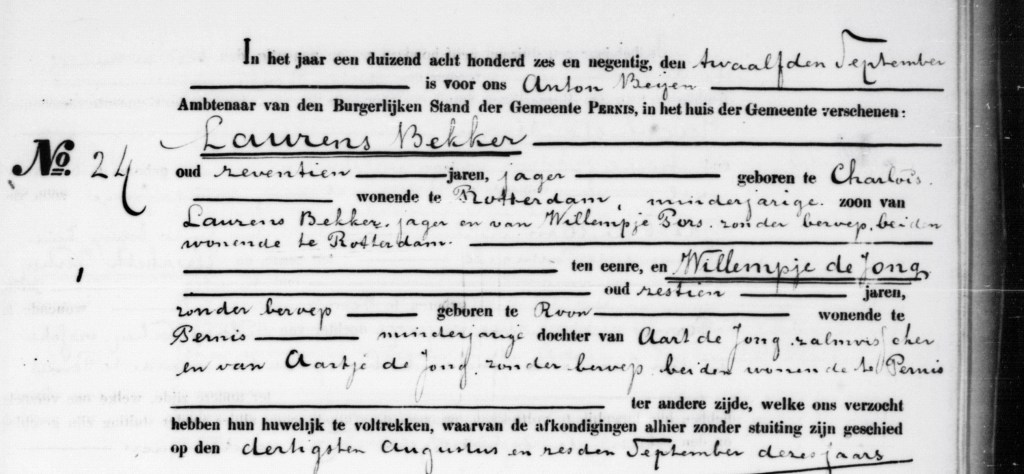 In het jaar een duizend acht honderd zes en negentig, den twaalfden September
is voor ons Anton Beijen
Ambtenaar van den Burgerlijken Stand der Gemeente PERNIS, in het huis der Gemeente verschenen:
Laurens Bekker
No. 24
oud zeventien jaren, jager geboren te Charlois.
wonende te Rotterdam, minderjarige zoon van
Laurens Bekker, jager en van Willempje Pors, zonder beroep, beiden
wonende te Rotterdam.
ten eenre, en Willempje de Jong,
oud zestien jaren,
zonder beroep geboren te Roon wonende te
Pernis minderjarige dochter van Aart de Jong, zalmvisscher
en van Aartje de Jong, zonder beroep beiden wonende te Pernis
ter andere zijde, welke ons verzocht
hebben hun huwelijk te voltrekken, waarvan de afkondigingen alhier zonder stuiting zijn geschied
op den dertigsten Augustus en zesden September dezes jaars